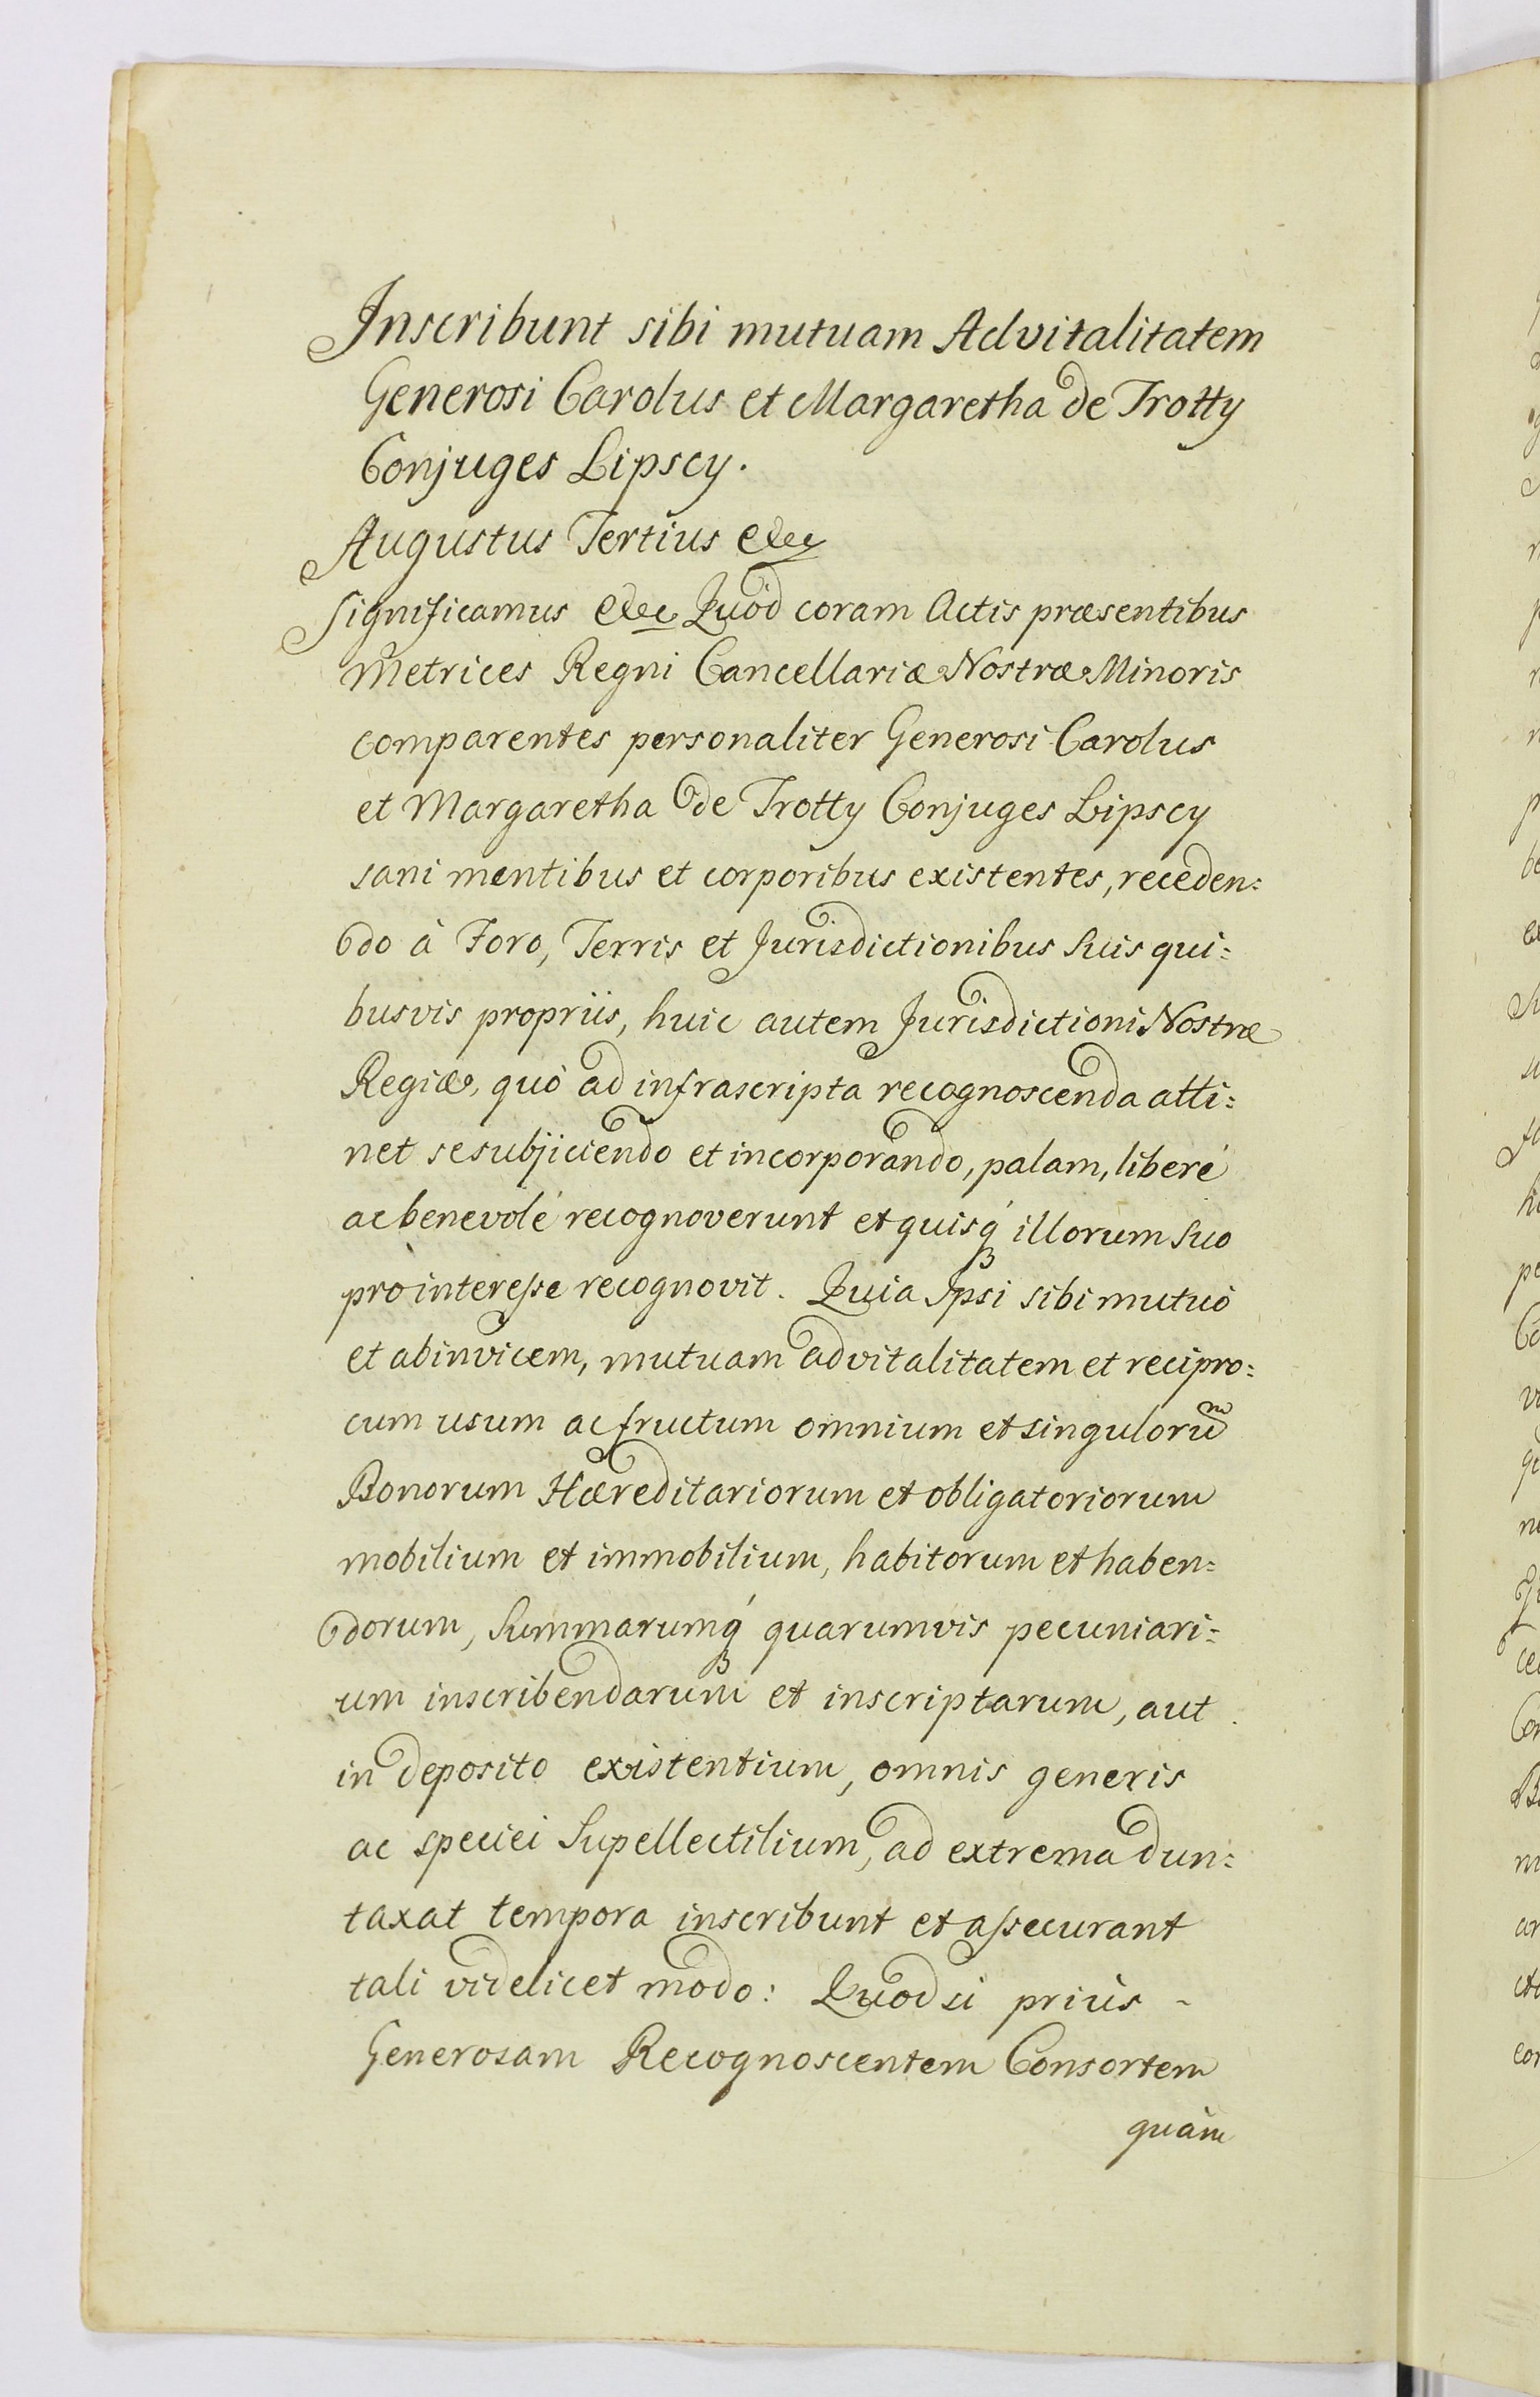 Inscribunt sibi mutuam Advitalitatem
Generosi Carolus et Margaretha de Trotty
Conjuges Lipscy.
Augustus Tertius etc
Significamus etc Quòd coram Actis præsentibus
Metrices Regni Cancellariæ Nostræ Minoris
comparentes personaliter Generosi Carolus
et Margaretha de Trotty Conjuges Lipscy
sani mentibus et corporibus existentes, receden:
do à Foro, Terris et Jurisdictionibus suis qui:
busvis propriis, huic autem Jurisdictioni Nostræ
Regiæ, quò ad infrascripta recognoscenda atti:
net se subjiciendo et incorporando, palam, liberé
ac benevolé recognoverunt et quisq́ illorum suo
pro interesse recognovit. Quia Ipsi sibi mutuò
et abinvicem, mutuam advitalitatem et recipro:
cum usum ac fructum omnium et singulorum
Bonorum Hæreditariorum et obligatoriorum
mobilium et immobilium, habitorum et haben:
dorum, Summarumq́ quarumvis pecuniari:
um inscribendarum et inscriptarum, aut
in deposito existentium, omnis generis
ac speciei Supellectilium, ad extrema dun:
taxat tempora inscribunt et assecurant
tali videlicet modo: Quod si priùs -
Generosam Recognoscentem Consortem
quàm